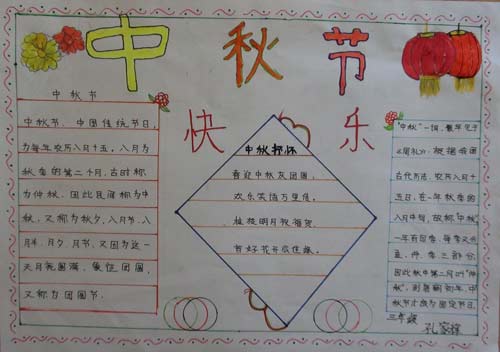 中秋节
快乐
中秋节
中秋节、中国传统节日，
为每年农历八月十五，八月为
秋季的第二个月，古时称
为仲秋，因此民间称为中
秋，又称为秋夕、八月节、八
月半、月夕、月节，又因为这一
天月亮圆满，象征团圆，
又称为团圆节。
中秋抒怀
喜迎中秋庆团圆，
欢乐笑语万里传。
桂枝明月祝福贺，
智好花开
"中秋"一词，最早见于
《周礼》，根据我国
古代历法，农历八月十
五日，在一年秋季的
八月中旬，故称"中秋"
一年有四季，每季又分
孟、仲、季三部分，
因此秋中第二月叫"仲
秋"，到唐朝初年，中
秋节才成为固定节日。
三年级